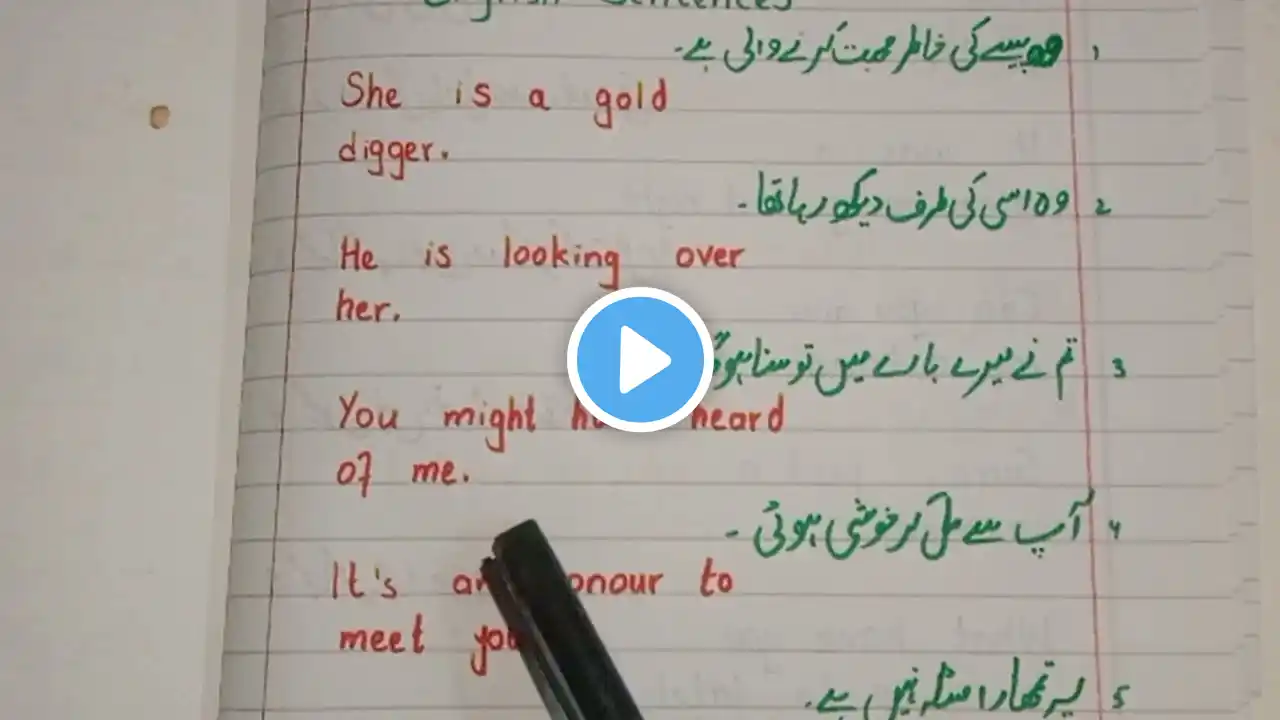 English Sentences
1 وہ پیسے کی خاطر محبت کرنے والی ہے۔
She is a gold
digger.
2 وہ اسی کی طرف دیکھ رہا تھا۔
He is looking over
her.
3 تم نے میرے بارے میں تو سنا ہوگا
You might heard
of me.
4 آپ سے مل کر خوشی ہوئی۔
It's an honour to
meet you
5 یہ تمھارا مسئلہ نہیں ہے۔